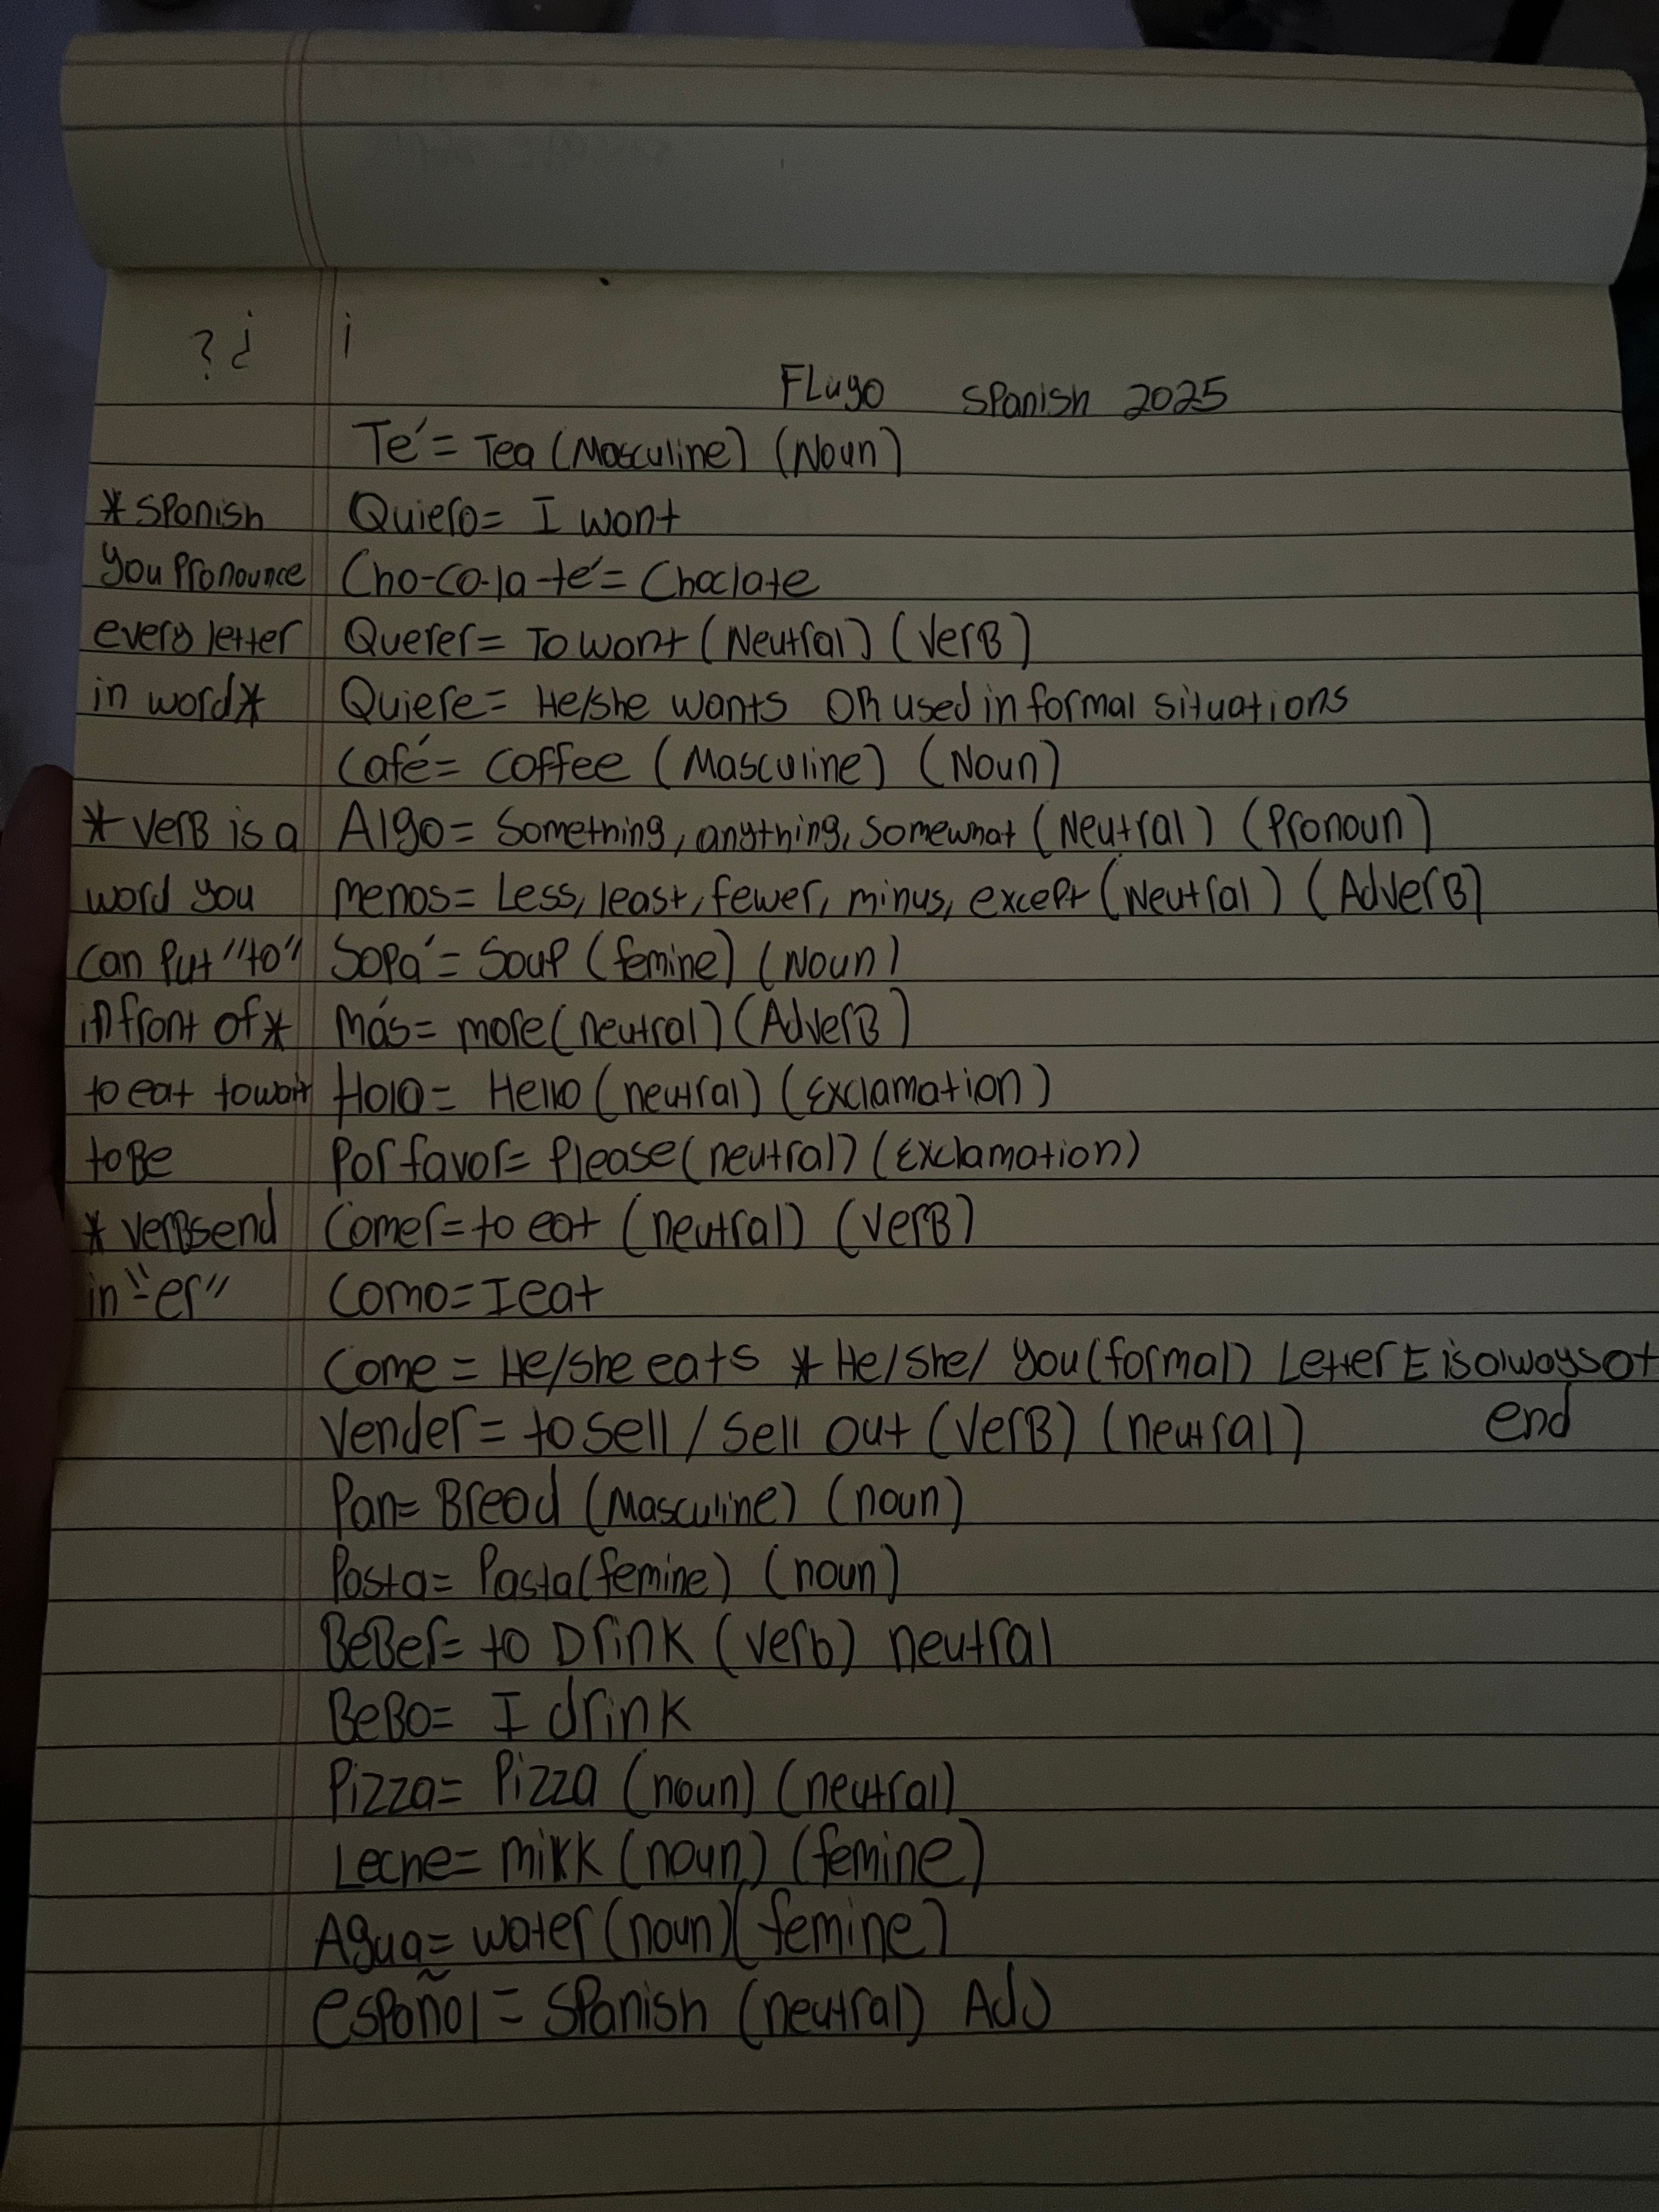 ? ¿ ¡
FLugo Spanish 2025
Te´= Tea (Masculine) (Noun)
*Spanish Quiero= I want
you Pronounce Cho-co-la-te´= Choclate
every letter Querer= To want (Neutral) (VerB)
in word* Quiere= He/she wants OR used in formal situations
Café= Coffee (Masculine) (Noun)
*VerB is a Algo= Something, anything, Somewhat (Neutral) (Pronoun)
word you Menos= Less, least, fewer, minus, except (Neutral) (AdverB)
can Put "to" SoPa´= SouP (femine) (Noun)
in front of* más= more (neutral) (AdverB)
to eat to wait Hola= Hello (neutral) (Exclamation)
to Be Por favor= Please (neutral) (Exclamation)
*VerBs end Comer= to eat (neutral) (VerB)
in "-er" Como= I eat
Come = He/she eats * He/she/ you (formal) Letter E is always at
Vender= to sell / Sell out (VerB) (neutral) end
Pan= Bread (Masculine) (noun)
Pasta= Pasta (femine) (noun)
BeBer= to Drink (verb) neutral
BeBo= I drink
Pizza= Pizza (noun) (neutral)
Leche= milk (noun) (femine)
Agua= water (noun) (femine)
español= Spanish (neutral) Adj